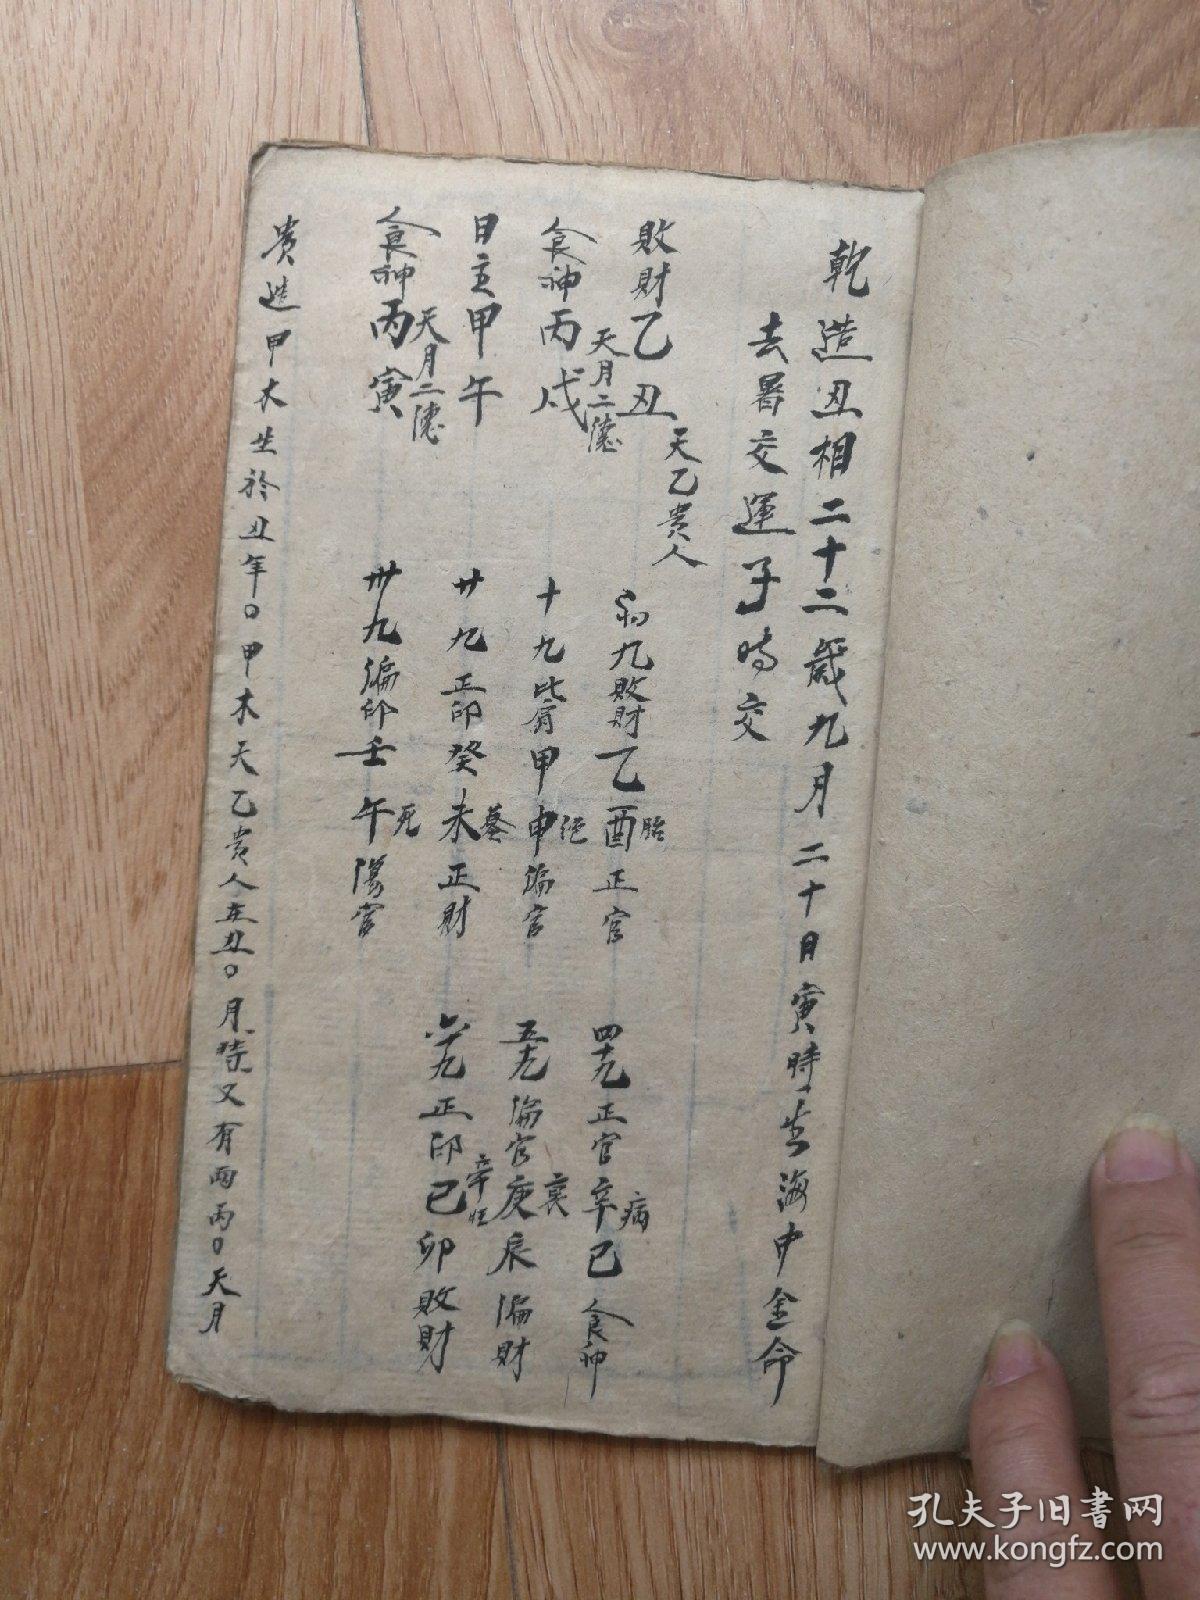 乾造丑相二十二歲九月二十日寅時生海中金命
去暑交運子時交
敗財乙丑 天乙貴人
食神丙戌 天月二德
日主甲午
食神丙寅 天月二德
初九敗財乙酉胎正官
十九比肩甲申绝偏官
廿九正印癸未墓正財
卅九偏印壬午死傷官
四十九正官辛巳病食神
五十九偏官庚辰衰偏財
六十九正印己卯敗財
貴造甲木生於丑年〇甲木天乙貴人在丑〇月時又有両丙〇天月
孔夫子旧书网
www.kongfz.com